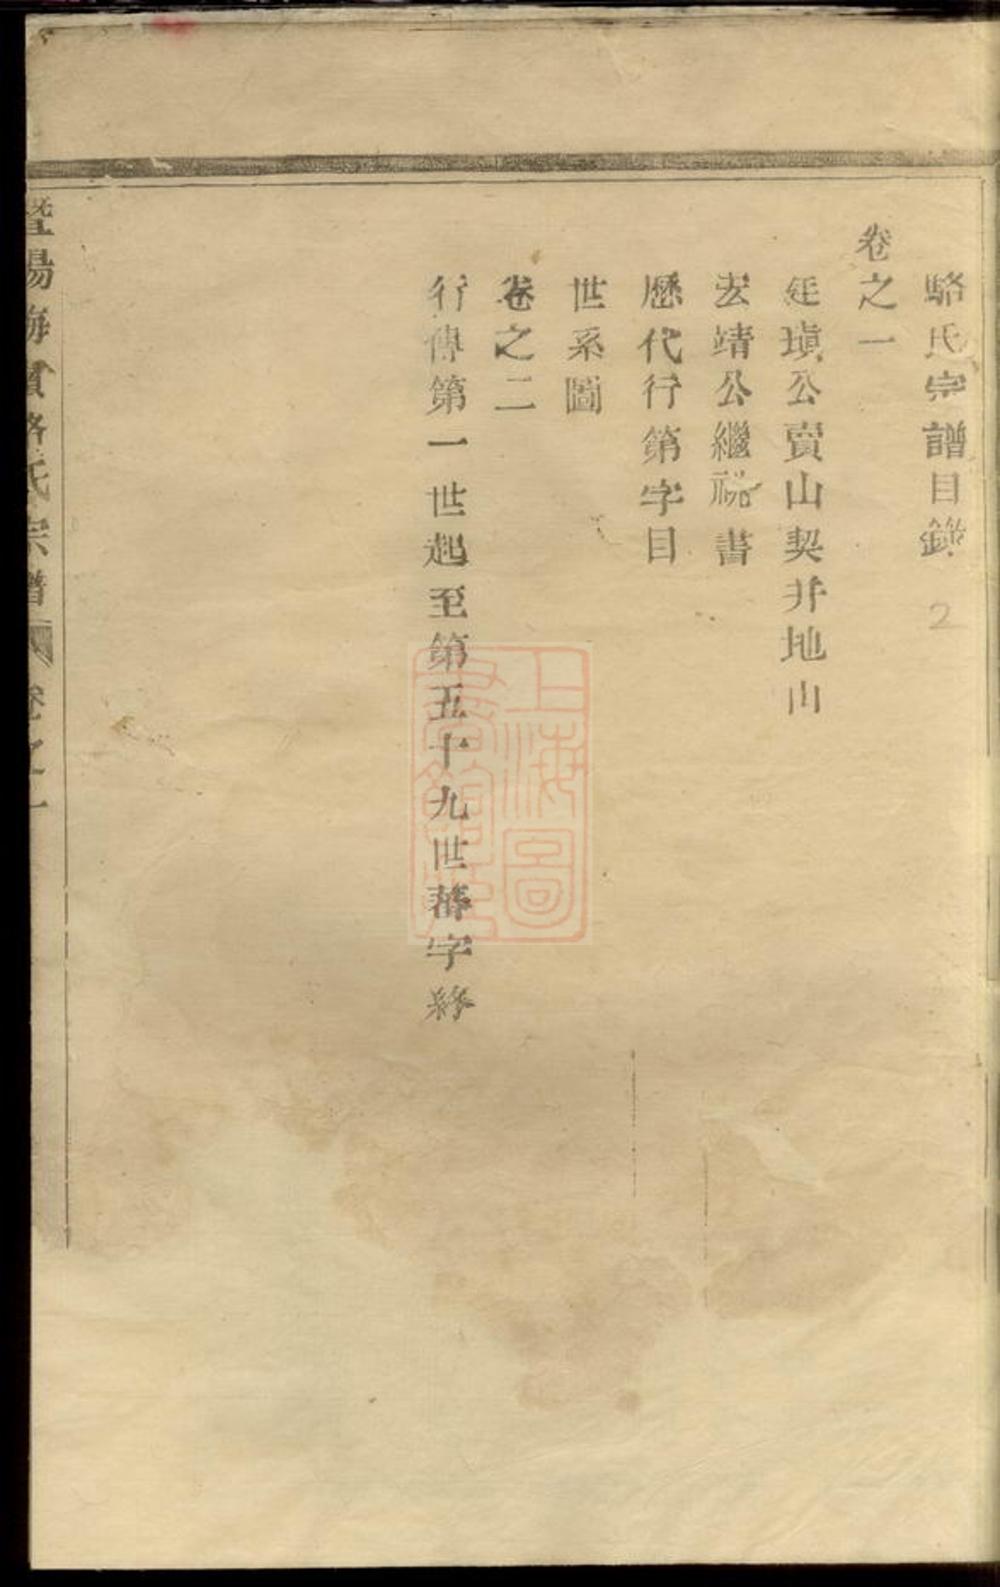 駱氏宗譜目錄
2
卷之一
廷瑱公賣山契并地山
宏靖公繼祝書
歷代行第字目
世系圖
卷之二
行傳第一世起至第五十九世蕃字終
暨陽海賓駱氏宗譜 卷之一
上海圖書館藏